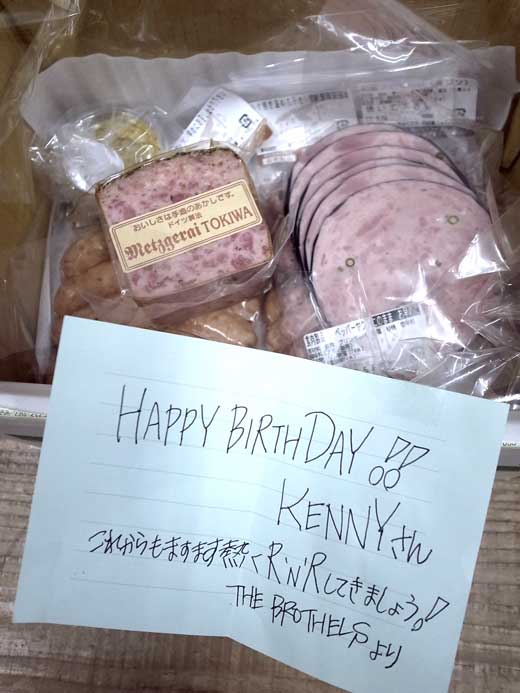 おいしさは手造のあかしです。
ドイツ製法
Metzgerai TOKIWA
HAPPY BIRTHDAY!!
KENNYさん
これからもますます熱くR'N'Rしてきましょう!
THE BROTHELSより